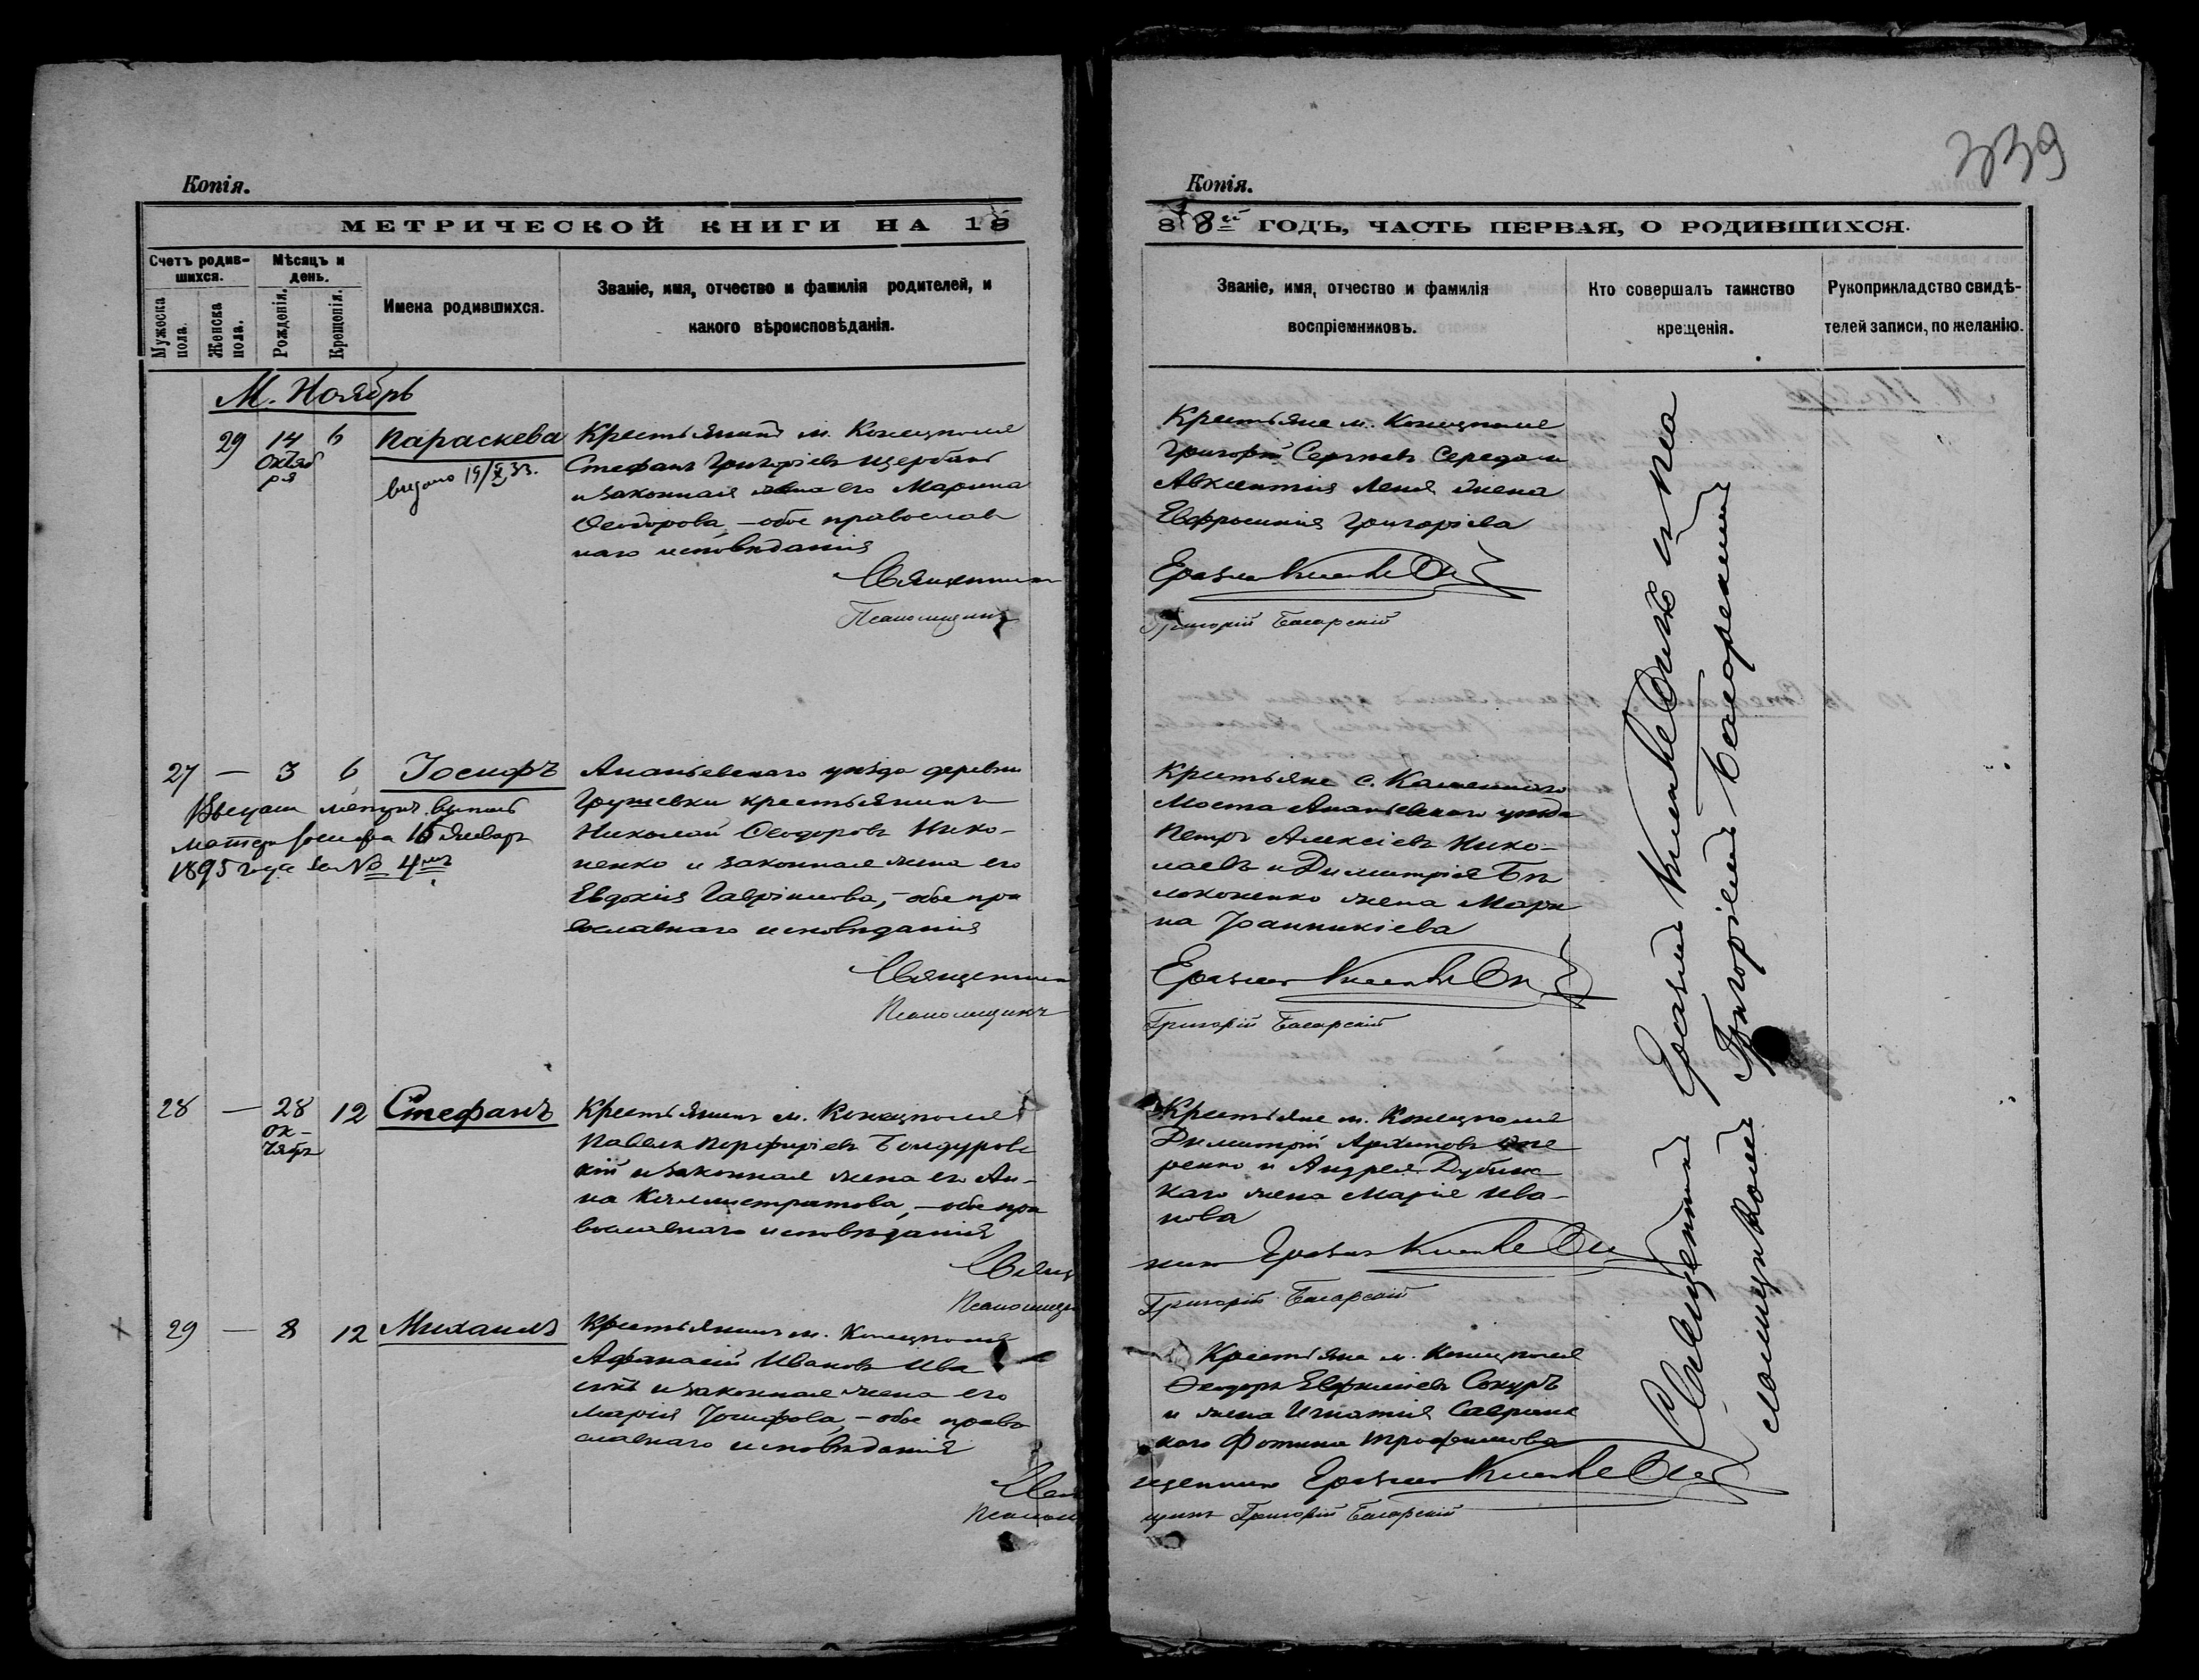 339
Копія.
МЕТРИЧЕСКОЙ КНИГИ НА 18
Счетъ родив-
шихся.
Мужеска
пола.
Женска
пола.
Мѣсяцъ и
день.
Рожденія.
Крещенія.
Имена родившихся.
Званіе, имя, отчество и фамилія родителей, и
какого вѣроисповѣданія.
М. Ноябрь
29 14 6 Параскева
Октяб
ря
видано 19/X 33.
Крестьянинъ м. Конецполя
Стефанъ Григоріевъ Щербань
и законная жена его Марина
Феодорова, – обое православ
наго исповѣданія
Священник
Псаломщикъ
27 — 3 6 Іосифъ
матери Іосифа 15 Январь
1895 года за № 4
Ананьевскаго уѣзда деревни
Грушевки крестьянинъ
Николай Феодоровъ Нико-
ненко и законная жена его
Евдокія Гавріилова, – обое пра
вославнаго исповѣданія
Священник
Псаломщикъ
28 — 28 12 Стефанъ
Ок-
тябр
Крестьянинъ м. Конецполя
Павелъ Порфиріевъ Бондуровс
кій и законная жена его Ан-
на Каллистратова, – обое пра
вославнаго исповѣданія
Свящ
Псаломщи
29 — 8 12 Михаилъ
Крестьянинъ м. Конецполя
Афанасій Ивановъ Ива
и законная жена его
Марія Іосифова, – обое право
славнаго исповѣданія
Свя
Псалом
Копія.
88й ГОДЪ, ЧАСТЬ ПЕРВАЯ, О РОДИВШИХСЯ.
Званіе, имя, отчество и фамилія
воспріемниковъ.
Кто совершалъ таинство
крещенія.
Рукоприкладство свидѣ-
телей записи, по желанію.
Крестьяне м. Конецполя
Григорій Сергѣевъ Середа и
Авксентія жена
Евфросинія Григоріева
Григорій Басарскій
Крестьяне с. Каменнаго
Моста Ананьевскаго уѣзда
Петръ Алексіевъ Нико-
лаевъ и Димитрія Бѣ
локоненко жена Мари
на Іоанникіева
Григорій Басарскій
Крестьяне м. Конецполя
Димитрій Архиповъ
ренко и Андрея Дубинс
каго жена Марія Ива-
нова
ник
Григорій Басарскій
Крестьяне м. Конецполя
Феодоръ Евфиміевъ Сокуръ
и жена Игнатія Савранс
кого Фотина Трофимова
щенник
щикъ Григорій Басарскій
Священник
Григорій Басарскій